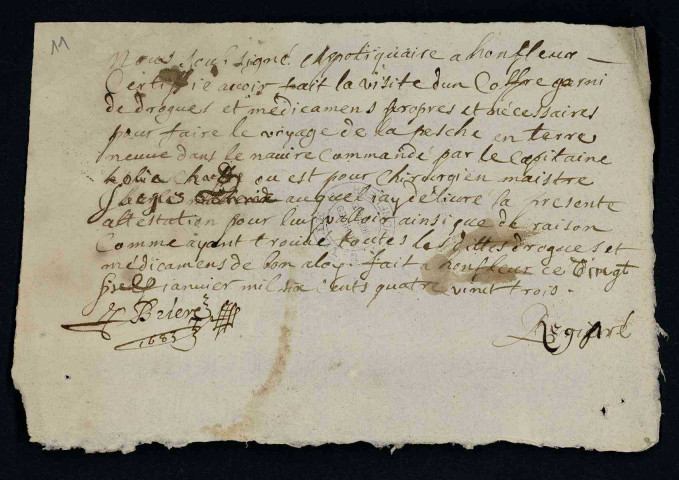 11
Nous soubsigné Apotiquaire a honfleur
Certiffie avoir fait la visite dun Coffre garni
de drogues et medicamens propres et nécessaires
pour faire le voyage de la pesche en terre
neuve dans le navire commandé par le capitaine
ou est pour chirurgien maistre
auquel jay délivré la presente
attestation pour luy valloir ainsi que de raison
Comme ayant trouvé touttes les dittes drogues et
médicamens de bon aloy. fait a honfleur ce vingt
janvier mil six cents quatre vinct trois.
J Briere
1683
Registré